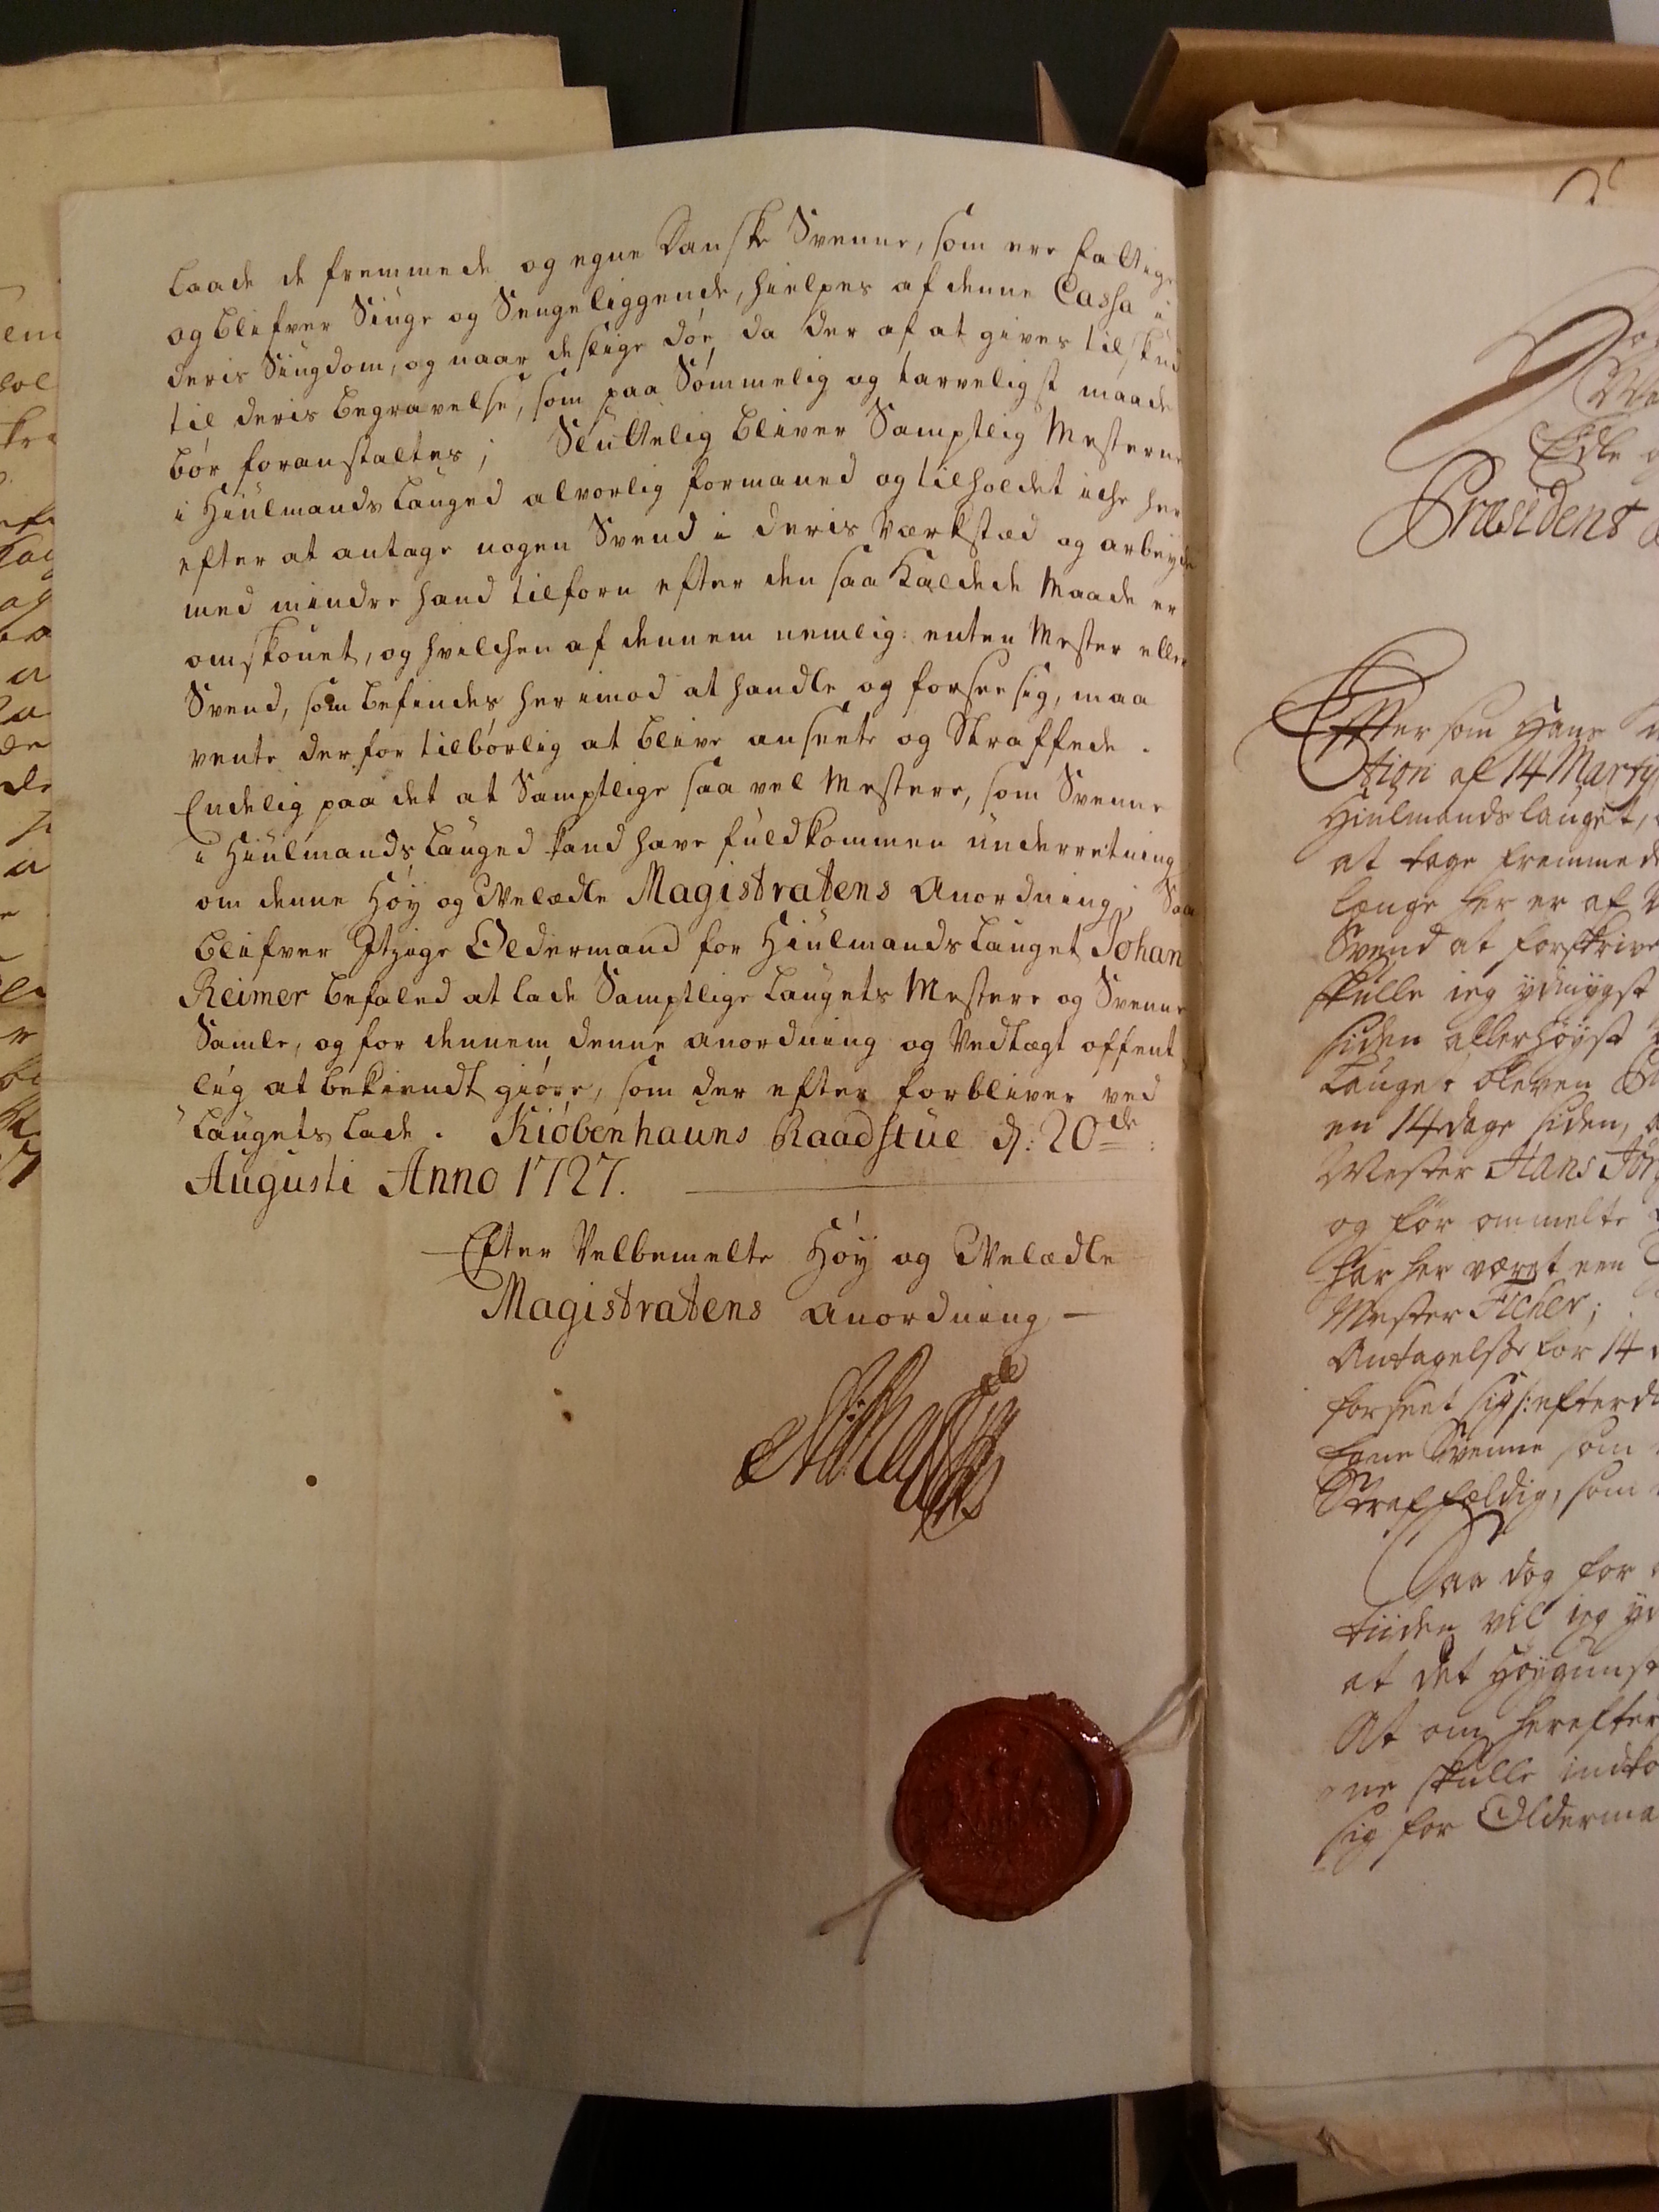 baade de fremmede og egne Danske Svenne, som ere fattige
og blifver Siuge og Sengeliggende, hielpes af denne Cassa i
deris Siugdom, og naar deslige döe, da der af at gives tilskud
til deris begravelse, som paa Sömmelig og tarveligst maade
bör foranstaltes; Sluttelig bliver Samptlig Mesterne
i Hiulmands Lauged alvorlig formaned og tilholdet iche her
efter at antage nogen Svend i deris Værkstæd og arbeyde
med mindre hand tilforn efter den saa Kaldede Maade er
omskouet, og hvilchen af dennem nemlig: enten Mester eller
Svend, som befindes her imod at handle og forsee sig, maa
vente derfor tilbörlig at blive anseete og Straffede.
Endelig paa det at Samptlige saa vel Mestere, som Svenne
i Hiulmands Lauged kand have fuldkommen underretning
om denne Höy og Velædle Magistratens Anordning; Saa
blifver Itzige Oldermand for Hiulmands Lauget Johan
Reimer befaled at lade Samptlige Laugets Mestere og Svenne
Samle, og for dennem denne anordning og Vedtægt offent
lig at bekiendt giöre, som der efter forbliver ved
Laugets Lade. Kiöbenhauns Raadstue d: 20de:
Augusti Anno 1727.
Efter Velbemelte Höy og Velædle
Magistratens Anordning
Edle
Præsident
Efftersom Hans
tion af 14 Marty
Hiulmands lauget,
at tage fremmede
længe her er af
Svend at forskrive
skulle ieg ydmygst
siden allerhöyst
Lauget bleven
en 14 dage siden,
Mester Hans
og för ommelte
har her været een
Mester Ficher;
Antagelse for 14
forseet sig /: efterdi
Egne Svenne som
Straffældig, som
Saa dog for
tiiden vil ieg
at det Höygunst
At om herefter
ene skulle indko
sig for Olderma